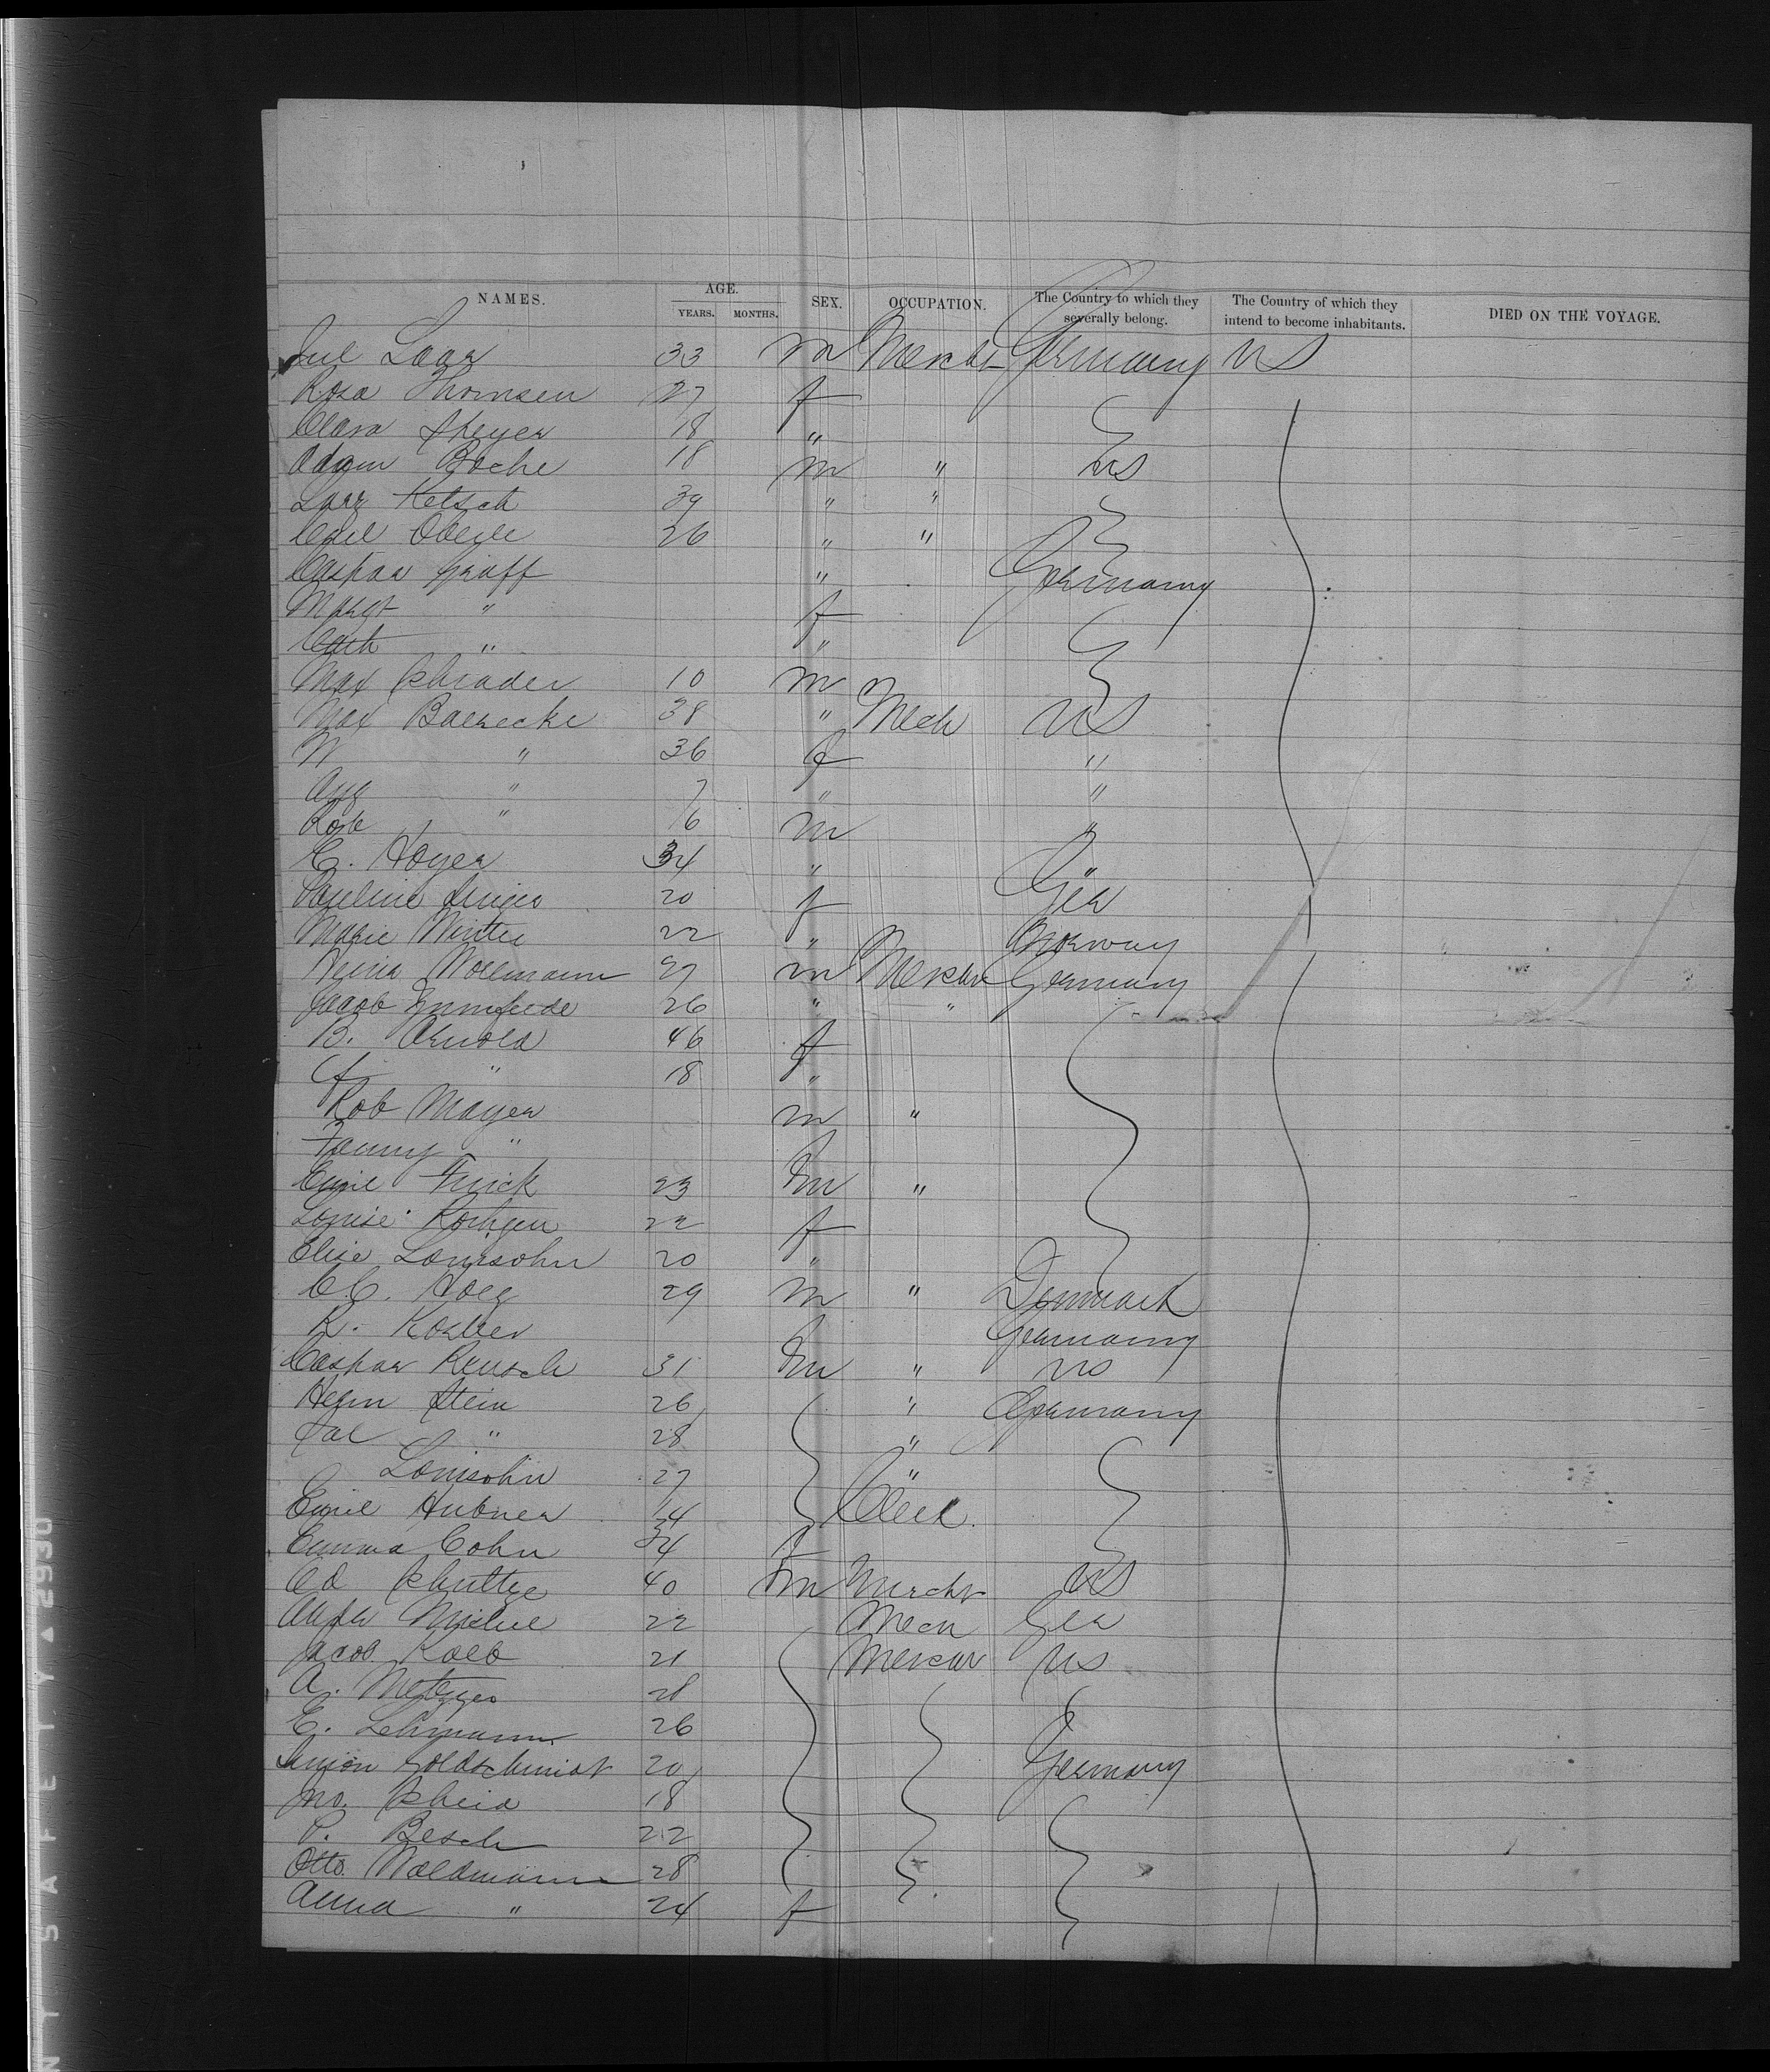 NAMES. AGE. SEX. OCCUPATION. The Country to which they severally belong. The Country of which they intend to become inhabitants. DIED ON THE VOYAGE.
YEARS. MONTHS.
Jul 33 m Mercht Germany US
Rosa Thomsen 27 f
Clara Speyer 18 "
Adam Boche 18 m " US
Ketsch 39 " "
26 " "
Caspar Graff " Germany
Margt " f
Cath " "
Max Schrader 10 m
Max Baerecke 38 " Mech US
M " 36 f "
Aug " 7 " "
Rob " 6 m "
C. Hoyer 34 " "
Pauline 20 f Ger
Marie Winter 22 " Norway
Wollmann 27 m Merchr Germany
Jacob 26 " "
B. Arnold 46 f
" 18 "
Rob Mayer m "
Fanny "
Emil Frick 23 m "
Louise 22 f
Elise Lewisohn 20 "
C.C. Hoeg 29 m " Denmark
R. Germany
Caspar Reusch 31 m " US
Herm Stein 26 " Germany
Sal " 28 "
Lewisohn 27 "
Emil Hubner 14 Clerk
Emma Cohn 34 f
Ed Schultze 40 m Mercht US
22 Mech Ger
Jacob Kolb 21 Merchr US
A. Metzger 28
E. Lehmann 26
Simon Goldschmidt 20 Germany
Jno. Scheid 18
P. Besch 22
Otto Waldmann 28
Anna " 24 f
SAFETY ▲ 2930